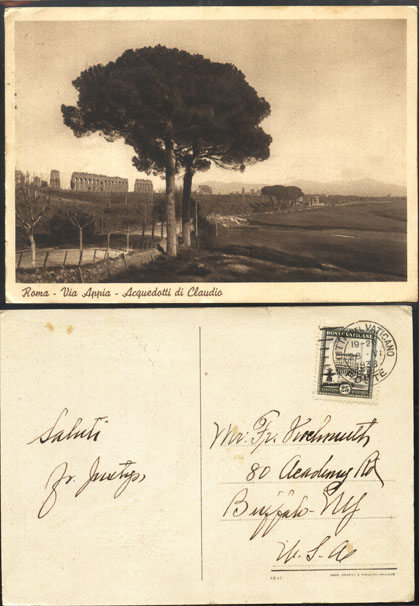 Roma - Via Appia - Acquedotti di Claudio
POSTE VATICANE
25
CITTÀ DEL VATICANO
POSTE
Saluti
fr.
Mr. Fr.
80 Academy Rd
Buffalo - NY
U. S. A